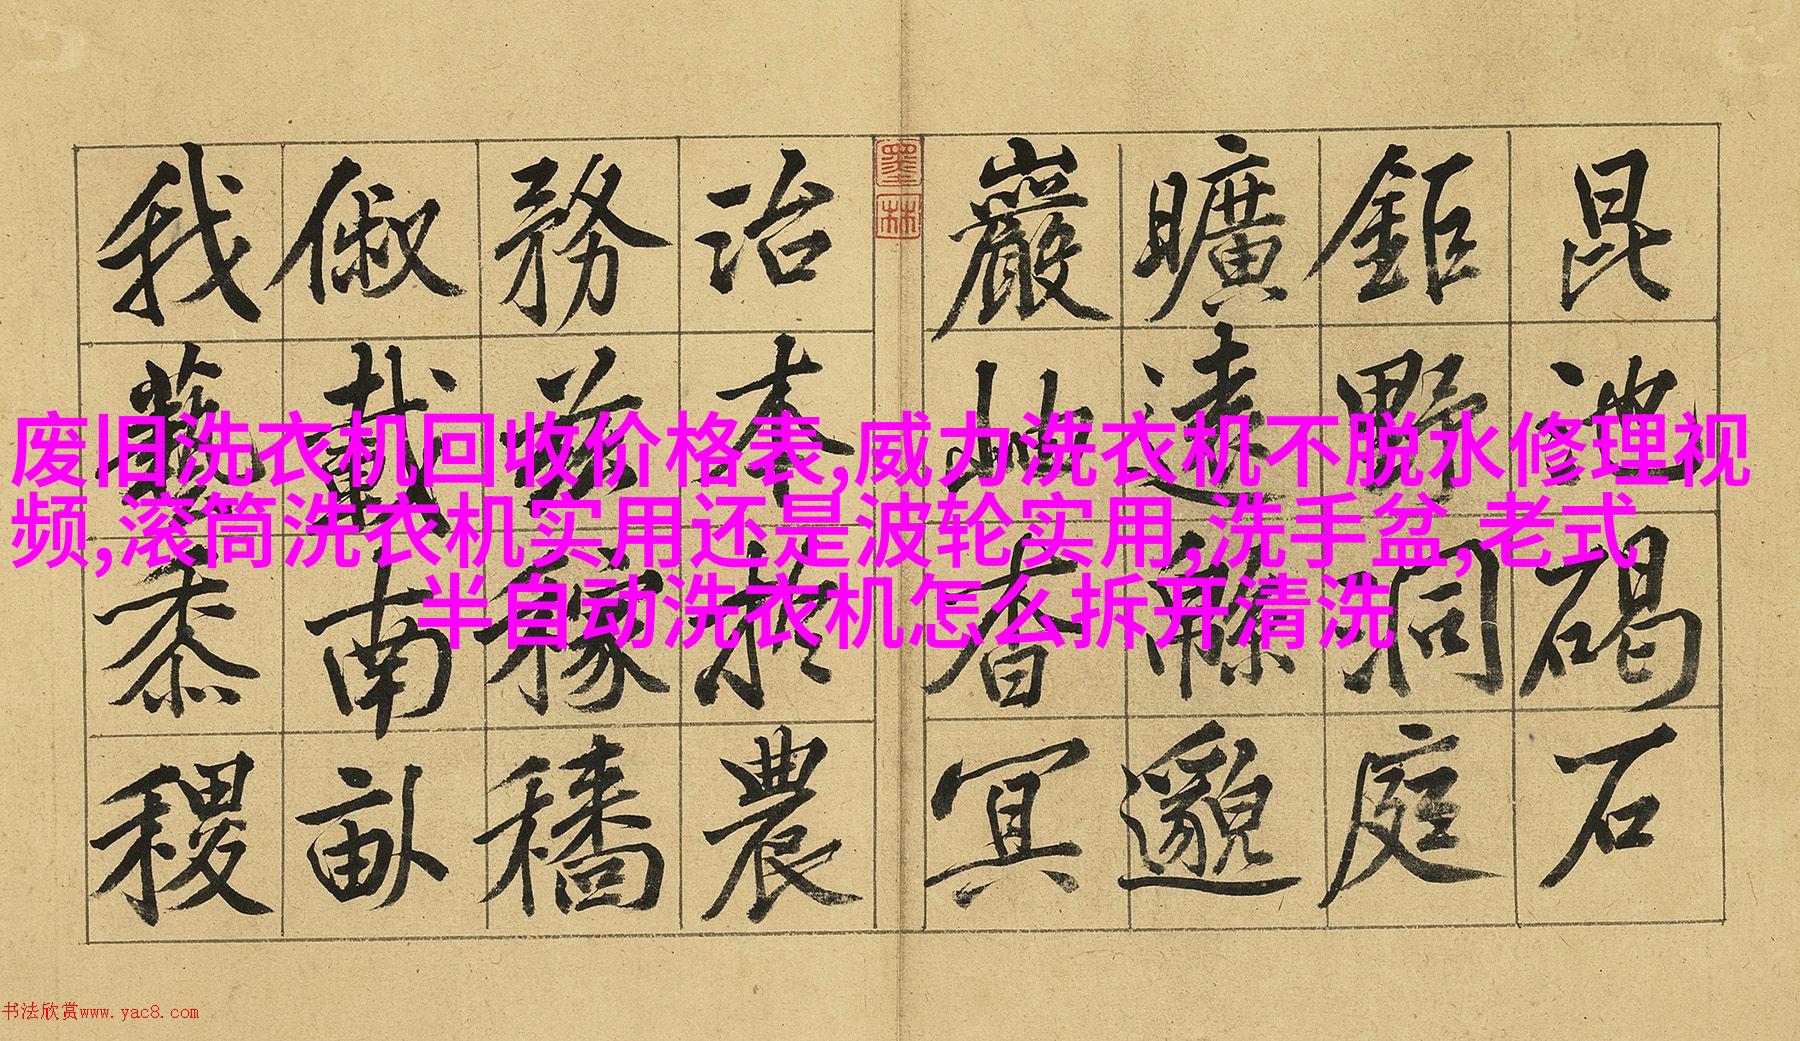 昆池碣石
鉅野洞庭
曠遠緜邈
巖岫杳冥
墨林
治本於農
務茲稼穡
俶載南畝
我藝黍稷
废旧洗衣机回收价格表,威力洗衣机不脱水修理视
频,滚筒洗衣机实用还是波轮实用,洗手盆,老式
半自动洗衣机怎么拆开清洗
书法欣赏www.yac8.com